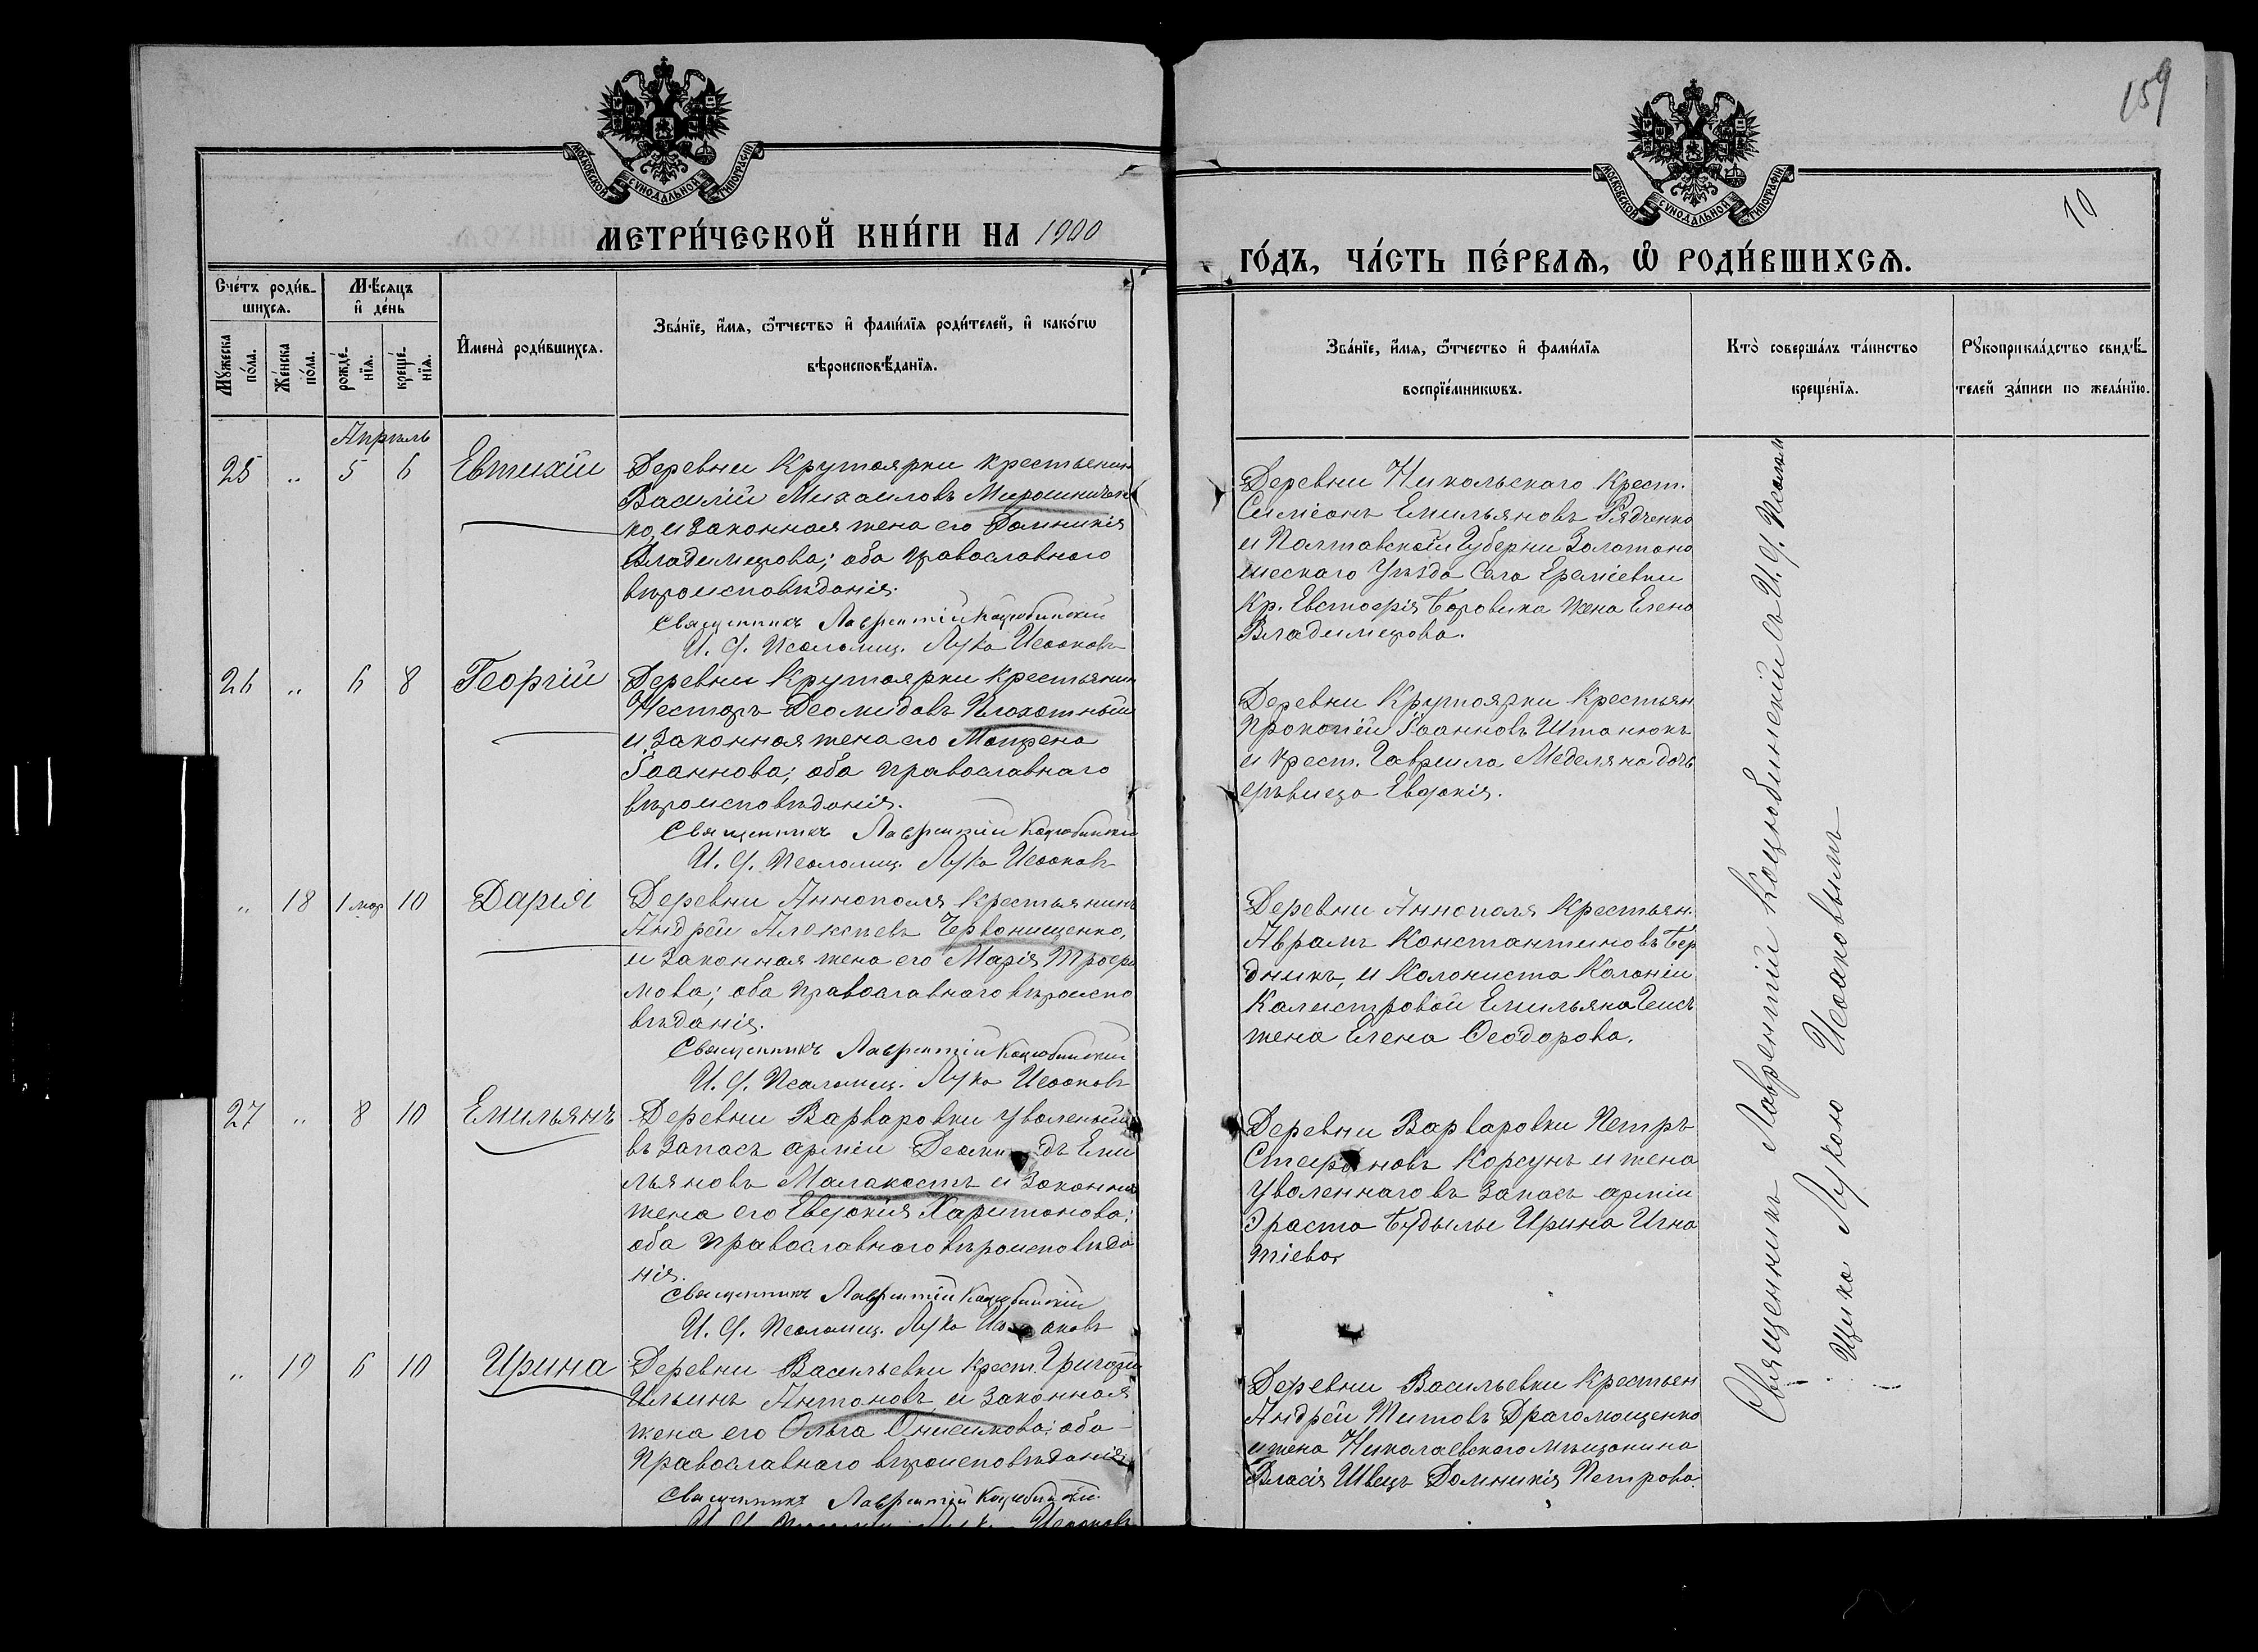 159
10
МОСКОВСКОЙ СѴНОДАЛЬНОЙ ТИПОГРАФІИ
МОСКОВСКОЙ СѴНОДАЛЬНОЙ ТИПОГРАФІИ
МЕТРИ́ЧЕСКОЙ КНИ́ГИ НА 1900
ГО́ДЪ, ЧА́СТЬ ПЕ́РВАѦ, Ѡ РОДИ́ВШИХСѦ.
Сче́тъ роди́в-
шихсѧ.
Мꙋжеска
по́ла.
Же́нска
по́ла.
Мѣ́сяцъ
и҆ де́нь
рожде́-
нїѧ.
креще́-
нїѧ.
И҆мена̀ роди́вшихсѧ.
Зва́нїе, и҆́мѧ, ѻ҆́тчество и҆ фами́лїѧ роди́телей, и҆ како́гѡ
вѣроисповѣ́данїѧ.
Зва́нїе, и҆́мѧ, ѻ҆́тчество и҆ фами́лїѧ
воспрїе́мникѡвъ.
Кто̀ соверша́лъ та́инство
креще́нїѧ.
Рꙋкоприкла́дство свидѣ́-
телей за́писи по жела́нїю.
Апрѣль
25 „ 5 6 Евтихій
Деревни Крутоярки крестьянин
Василій Михаиловъ Мирошничен
ко, и законная жена его Домникія
Владимірова; оба православнаго
вѣроисповѣданія.
Священникъ Лаврентій Коцюбинскій
И. д. Псаломщ. Лука Исааковъ
Деревни Никольскаго Крест.
Симеонъ Емильяновъ Рядченко
и Полтавской Губерни Золотоно
шескаго Уѣзда Села Ереміевки
Кр. Евстафія Боровика жена Елена
Владимірова.
26 „ 6 8 Георгій
Деревни Крутоярки Крестьянин
Несторъ Деомидовъ Плохотный
и законная жена его Матрена
Іоаннова; оба православнаго
вѣроисповѣданія.
Священникъ Лаврентій Коцюбинскій
И. д. Псаломщ. Лука Исааковъ
Деревни Крутоярки Крестьян
Прокопій Іоанновъ Штанюкъ
и крест. Гавриила Меделяна дочь
дѣвица Евдокія.
„ 18 1 мар 10 Дарія
Деревни Аннополя Крестьянинъ
Андрей Алексѣевъ Червонищенко,
и законная жена его Марія Трофи
мова; оба православнаго вѣроиспо
вѣданія.
Священникъ Лаврентій Коцюбинскій
И. д. Псаломщ. Лука Исааковъ
Деревни Аннополя Крестьян.
Аврамъ Константиновъ Бер
дникъ, и Колониста Колоніи
Калистровой Емильяна
жена Елена Ѳеодорова.
27 „ 8 10 Емильянъ
Деревни Варваровки уволеный
въ запасъ арміи Деоми дъ Еми
льяновъ Малакостъ и законная
жена его Евдокія Харитонова;
оба православнаго вѣроисповѣда
нія.
Священникъ Лаврентій Коцюбинскій
И. д. Псаломщ. Лука Исааковъ
Деревни Варваровки Петръ
Стефановъ Корсунъ и жена
уволеннаго въ запасъ арміи
Эраста Будылы Ирина Игна
тіева.
„ 19 6 10 Ирина
Деревни Васильевки Крест. Григорій
Ильинъ Антоновъ, и законная
жена его Ольга Онисимова; оба
православнаго вѣроисповѣданія
Священникъ Лаврентій Коцюбинскій
И. д. Псаломщ. Лука Исааковъ
Деревни Васильевки Крестьян
Андрей Титовъ Драгомощенко
и жена Николаевскаго мѣщанина
Власія Швецъ Домникія Петрова.
Священникъ Лаврентій Коцюбинскій съ И. д. Псалом
щика Лукою Исааковымъ